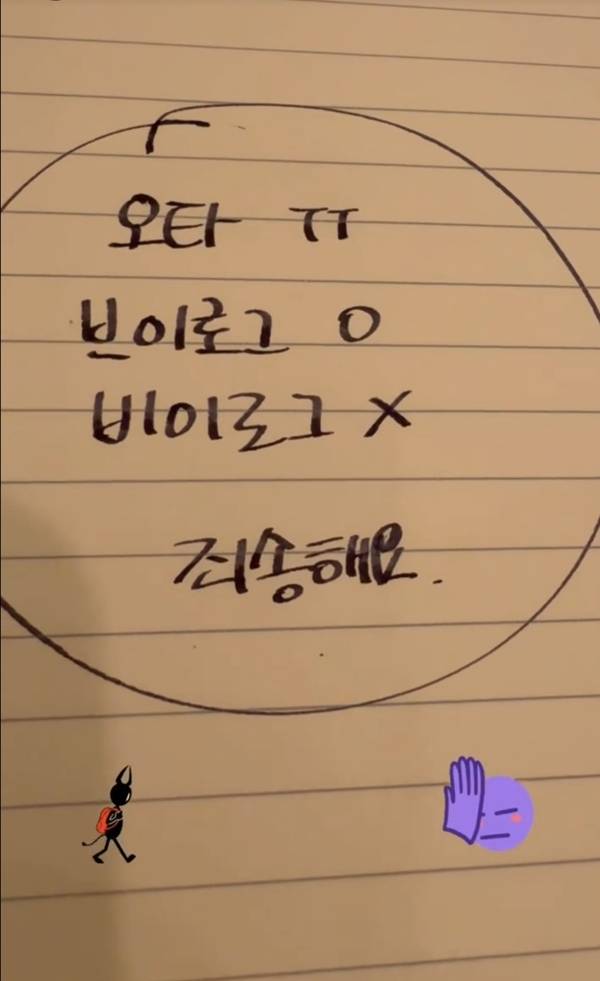 오타 ㅠㅠ
브이로그 O
비이로그 X
죄송해요.